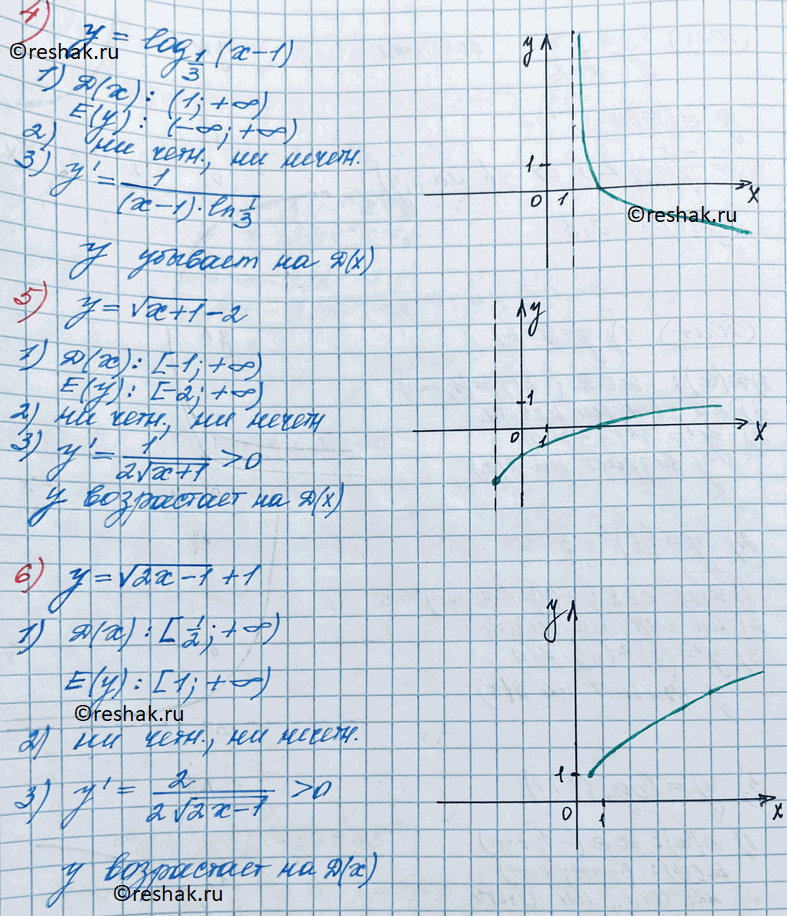 4) y = log_{1/3} (x-1)
©reshak.ru
1) D(x): (1; +∞)
E(y): (-∞; +∞)
2) ни четн., ни нечетн.
3) y' = 1/((x-1)·ln 1/3)
y убывает на D(x)
y
1
0 1 x
©reshak.ru
5) y = √(x+1) - 2
1) D(x): [-1; +∞)
E(y): [-2; +∞)
2) ни четн., ни нечетн
3) y' = 1/(2√(x+1)) >0
y возрастает на D(x)
y
1
0 1 x
6) y = √(2x-1) + 1
1) D(x): [1/2; +∞)
E(y): [1; +∞)
©reshak.ru
2) ни четн., ни нечетн.
3) y' = 2/(2√(2x-1)) >0
y возрастает на D(x)
©reshak.ru
y
1
0 1 x